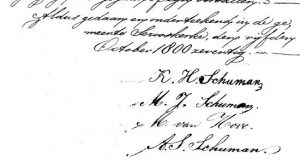 Aldus gedaan en onderteekend in de ge
meente Serooskerke, den vijfden
October 1800 zeventig.
K. H. Schuman,
M. J. Schuman,
M van Hove.
A. S. Schuman.